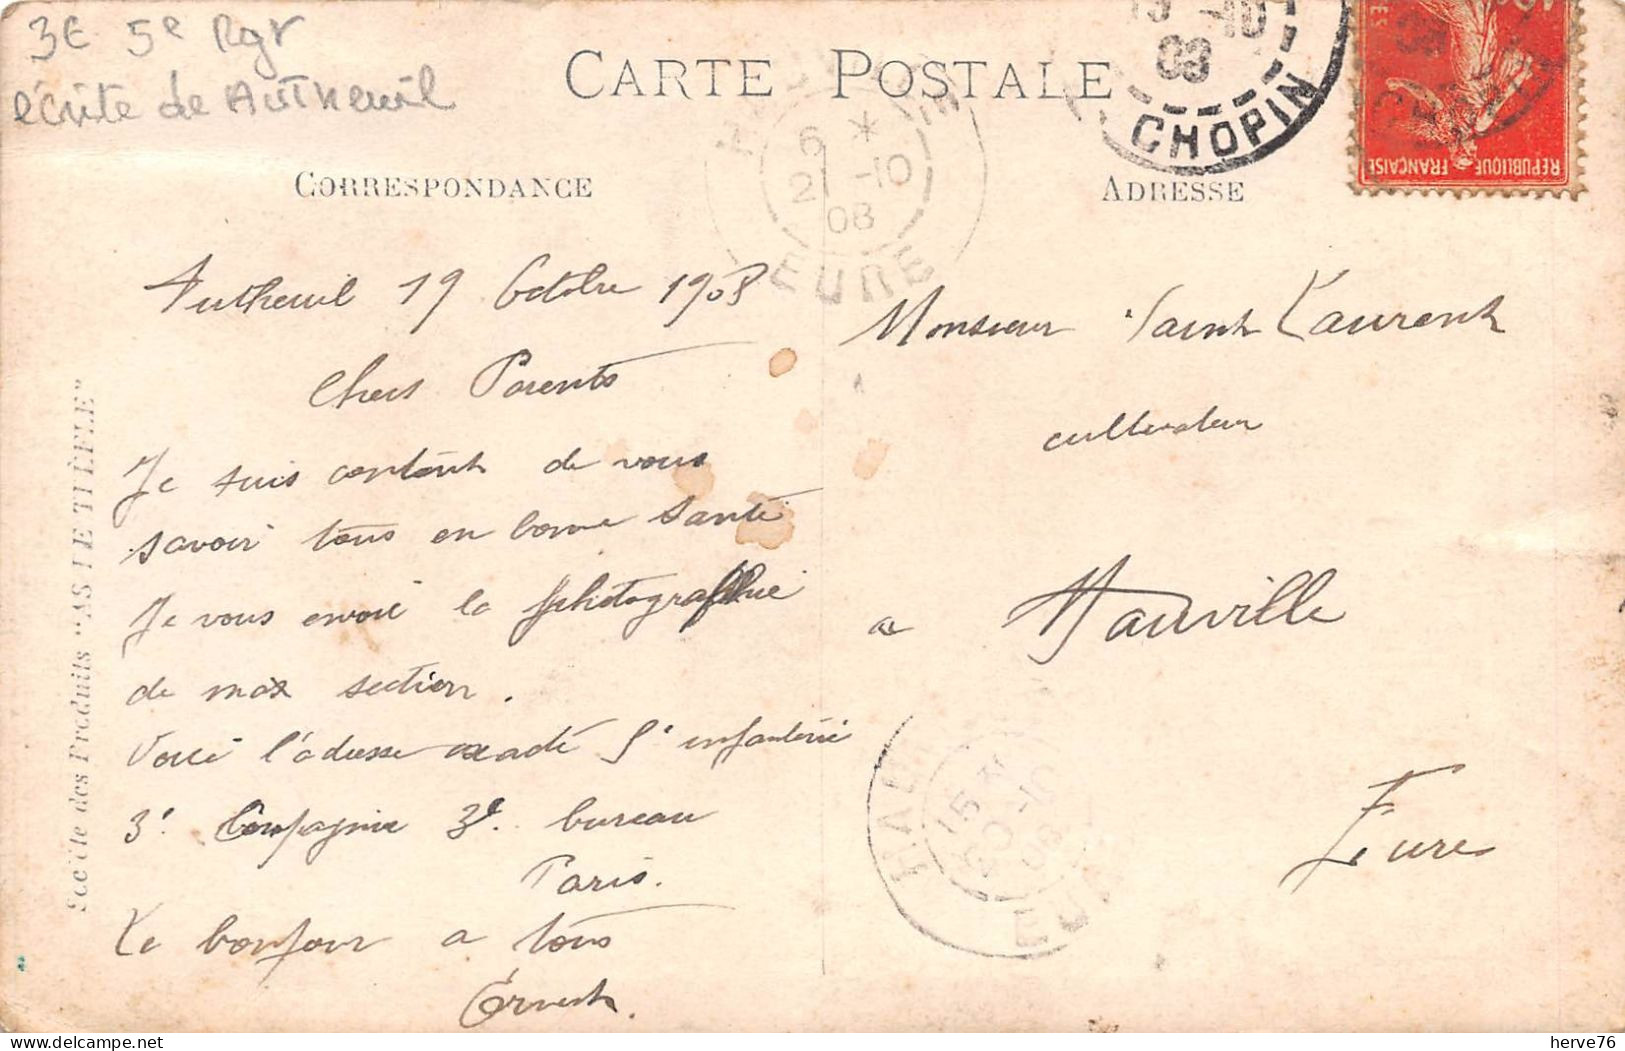 3E 5e Rgr
écrite de AUTHEUIL
CARTE POSTALE
CORRESPONDANCE
ADRESSE
-10
08
CHOPIN
RÉPUBLIQUE FRANÇAISE
6 *
21 -10
08
EURE
Autheuil 19 Octobre 1908
Chers Parents
Je suis contant de vous
savoir tous en bonne santé
Je vous envoie la photographie
de max section.
Voici l'adresse exacte 5e infanterie
3e Compagnie 3e. bureau
Paris.
Le bonjour a tous
Ernest.
Monsieur Saint Laurent
cultivateur
a Hauville
Eure
15
20 -10
08
Société des Produits "AS DE TRÈFLE"
herve76